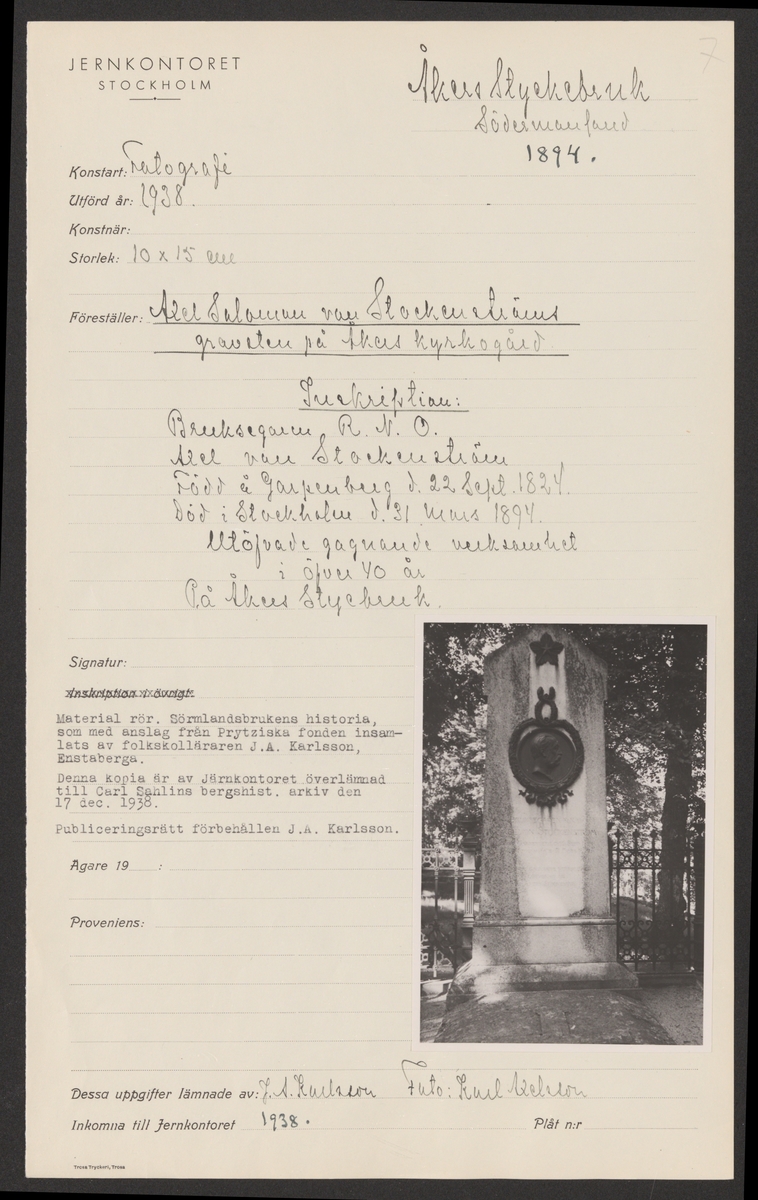 7
JERNKONTORET
STOCKHOLM
Åkers Styckebruk
Södermanland
1894.
Konstart: Fotografi
Utförd år: 1938.
Konstnär:
Storlek: 10 x 15 cm
Föreställer: Axel Salomon von Stockenströms
gravsten på Åkers kyrkogård
Inskription:
Bruksegaren R. N. O.
Axel von Stockenström
Född å Garpenberg d. 22 Sept. 1824.
Död i Stockholm d. 31 Mars 1894.
Utöfvade gagnande verksamhet
i öfver 40 år
På Åkers Stycebruk.
Signatur:
Inskription i övrigt:
Material rör. Sörmlandsbrukens historia,
som med anslag från Prytziska fonden insam-
lats av folkskolläraren J.A. Karlsson,
Enstaberga.
Denna kopia är av Järnkontoret överlämnad
till Carl Sahlins bergshist. arkiv den
17 dec. 1938.
Publiceringsrätt förbehållen J.A. Karlsson.
Ägare 19 :
Proveniens:
Dessa uppgifter lämnade av: J. A. Karlsson Foto: Karl Axelsson
Inkomna till Jernkontoret 1938.
Plåt n:r
Trosa Tryckeri, Trosa